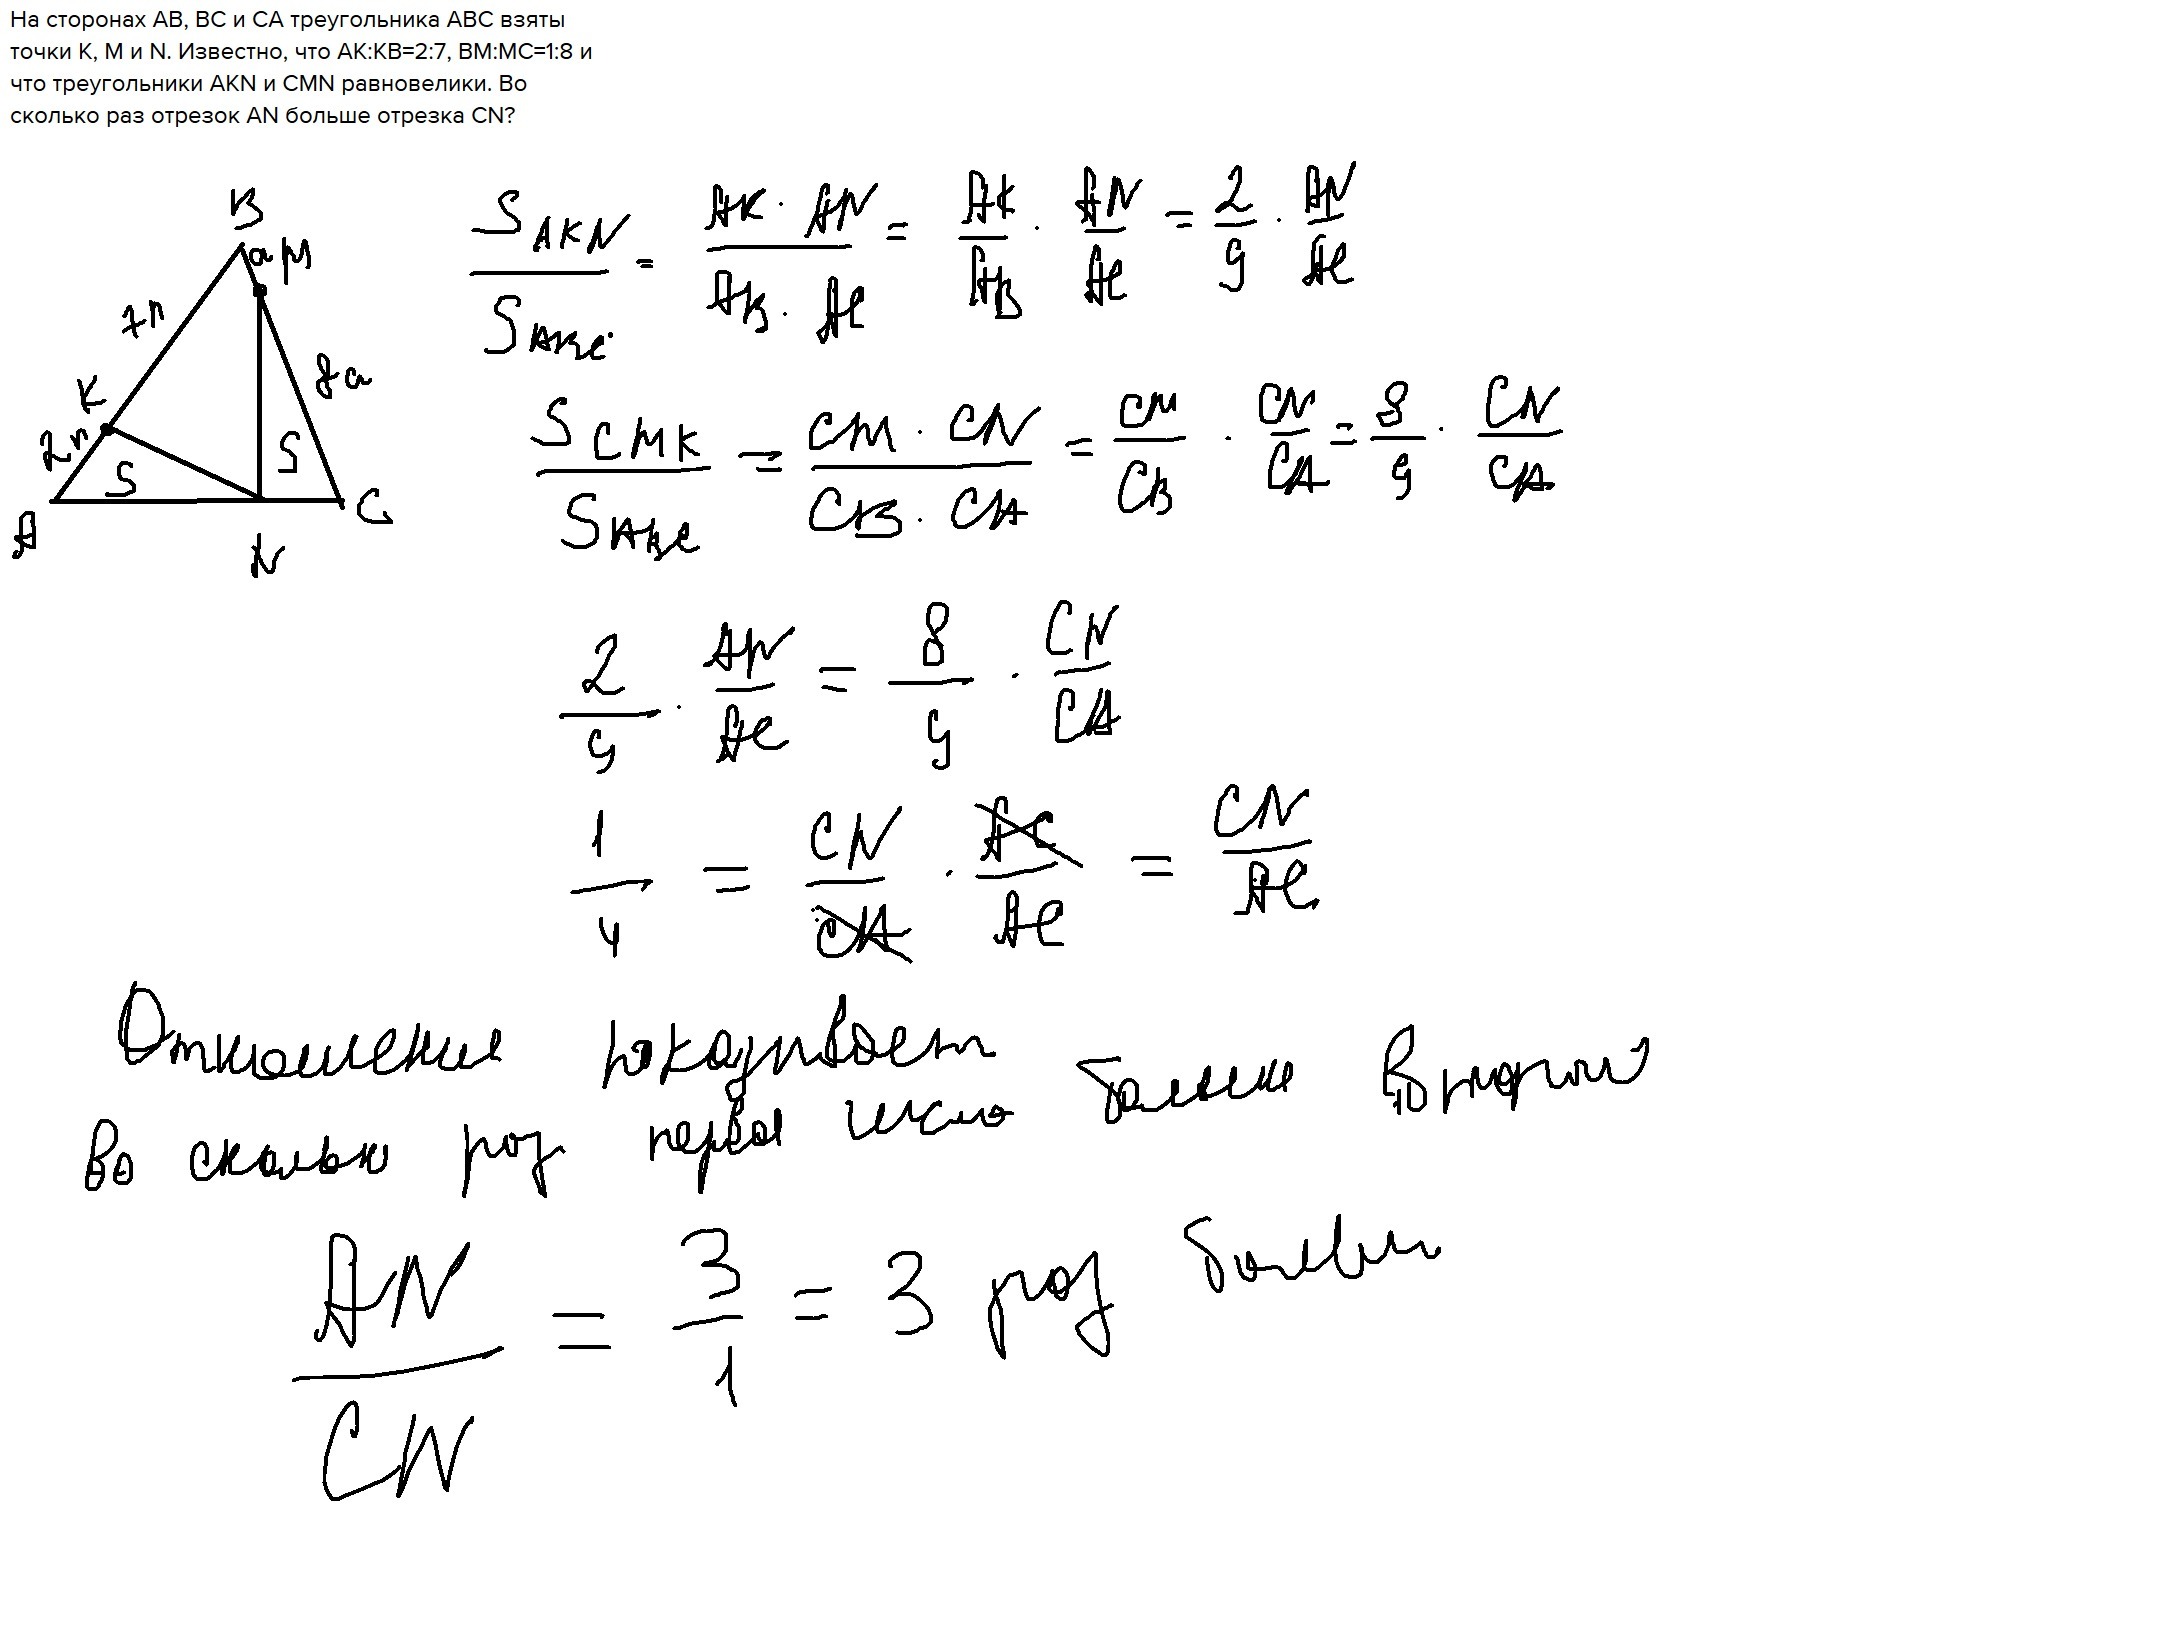 На сторонах AB, BC и CA треугольника ABC взяты
точки K, M и N. Известно, что AK:KB=2:7, BM:MC=1:8 и
что треугольники AKN и CMN равновелики. Во
сколько раз отрезок AN больше отрезка CN?
B
a M
7n
8a
K
2n
S
S
A
N
C
S AKN / S ABC = AK · AN / AB · AC = AK / AB · AN / AC = 2 / 9 · AN / AC
S CMK / S ABC = CM · CN / CB · CA = CM / CB · CN / CA = 8 / 9 · CN / CA
2 / 9 · AN / AC = 8 / 9 · CN / CA
1 / 4 = CN / CA · AC / AC = CN / AC
Отношение показывает
во сколько раз первое число больше второго
AN / CN = 3 / 1 = 3 раз больше